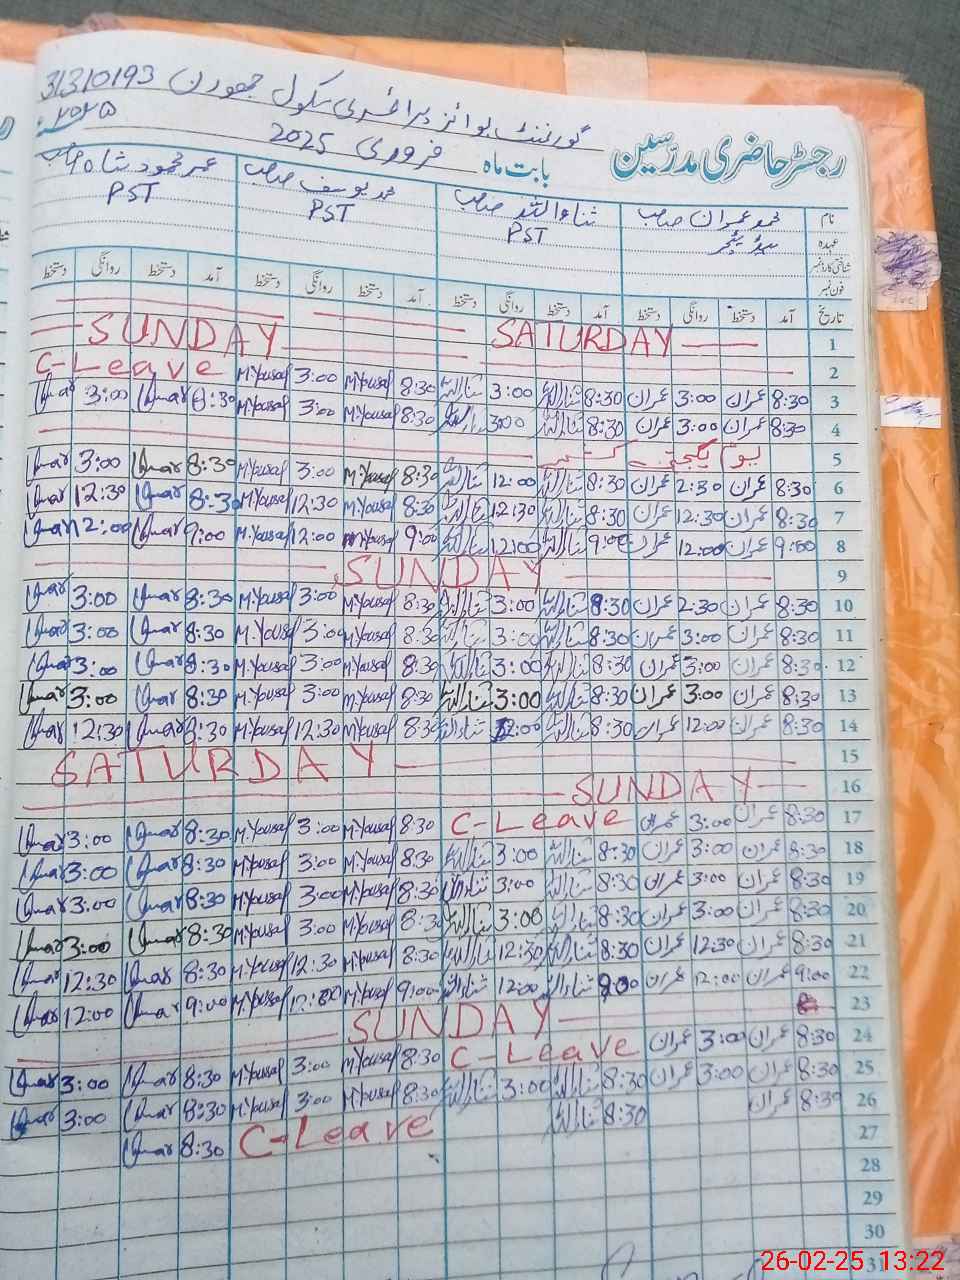 گورنمنٹ بوائز پرائمری سکول جھورن 31310193
رجسٹر حاضری مدرّسین بابت ماہ فروری 2025 ۲۰۲۵ء
نام محمد عمران صاحب ثناء اللہ صاحب محمد یوسف صاحب عمر محمود شاہ صاحب
عہدہ ہیڈ ٹیچر PST PST PST
شناختی کارڈ نمبر
فون نمبر
تاریخ آمد دستخط روانگی دستخط آمد دستخط روانگی دستخط آمد دستخط روانگی دستخط آمد دستخط روانگی دستخط
1 SATURDAY
2 SUNDAY
3 8:30 عمران 3:00 عمران 8:30 ثناءاللہ 3:00 ثناءاللہ 8:30 M.Yousaf 3:00 M.Yousaf C-Leave
4 8:30 عمران 3:00 عمران 8:30 ثناءاللہ 3:00 ثناءاللہ 8:30 M.Yousaf 3:00 M.Yousaf 8:30 Umar 3:00 Umar
5 یوم یکجہتی کشمیر
6 8:30 عمران 2:30 عمران 8:30 ثناءاللہ 12:00 ثناءاللہ 8:30 M.Yousaf 3:00 M.Yousaf 8:30 Umar 3:00 Umar
7 8:30 عمران 12:30 عمران 8:30 ثناءاللہ 12:30 ثناءاللہ 8:30 M.Yousaf 12:30 M.Yousaf 8:30 Umar 12:30 Umar
8 9:00 عمران 12:00 عمران 9:00 ثناءاللہ 12:00 ثناءاللہ 9:00 M.Yousaf 12:00 M.Yousaf 9:00 Umar 12:00 Umar
9 SUNDAY
10 8:30 عمران 2:30 عمران 8:30 ثناءاللہ 3:00 ثناءاللہ 8:30 M.Yousaf 3:00 M.Yousaf 8:30 Umar 3:00 Umar
11 8:30 عمران 3:00 عمران 8:30 ثناءاللہ 3:00 ثناءاللہ 8:30 M.Yousaf 3:00 M.Yousaf 8:30 Umar 3:00 Umar
12 8:30 عمران 3:00 عمران 8:30 ثناءاللہ 3:00 ثناءاللہ 8:30 M.Yousaf 3:00 M.Yousaf 8:30 Umar 3:00 Umar
13 8:30 عمران 3:00 عمران 8:30 ثناءاللہ 3:00 ثناءاللہ 8:30 M.Yousaf 3:00 M.Yousaf 8:30 Umar 3:00 Umar
14 8:30 عمران 12:00 عمران 8:30 ثناءاللہ 12:00 ثناءاللہ 8:30 M.Yousaf 12:30 M.Yousaf 8:30 Umar 12:30 Umar
15 SATURDAY
16 SUNDAY
17 8:30 عمران 3:00 عمران C-Leave 8:30 M.Yousaf 3:00 M.Yousaf 8:30 Umar 3:00 Umar
18 8:30 عمران 3:00 عمران 8:30 ثناءاللہ 3:00 ثناءاللہ 8:30 M.Yousaf 3:00 M.Yousaf 8:30 Umar 3:00 Umar
19 8:30 عمران 3:00 عمران 8:30 ثناءاللہ 3:00 ثناءاللہ 8:30 M.Yousaf 3:00 M.Yousaf 8:30 Umar 3:00 Umar
20 8:30 عمران 3:00 عمران 8:30 ثناءاللہ 3:00 ثناءاللہ 8:30 M.Yousaf 3:00 M.Yousaf 8:30 Umar 3:00 Umar
21 8:30 عمران 12:30 عمران 8:30 ثناءاللہ 12:30 ثناءاللہ 8:30 M.Yousaf 12:30 M.Yousaf 8:30 Umar 12:30 Umar
22 9:00 عمران 12:00 عمران 9:00 ثناءاللہ 12:00 ثناءاللہ 9:00 M.Yousaf 12:00 M.Yousaf 9:00 Umar 12:00 Umar
23 SUNDAY
24 8:30 عمران 3:00 عمران C-Leave 8:30 M.Yousaf 3:00 M.Yousaf 8:30 Umar 3:00 Umar
25 8:30 عمران 3:00 عمران 8:30 ثناءاللہ 3:00 ثناءاللہ 8:30 M.Yousaf 3:00 M.Yousaf 8:30 Umar 3:00 Umar
26 8:30 عمران 8:30 ثناءاللہ C-Leave 8:30 Umar
27
28
29
30
31
26-02-25 13:22